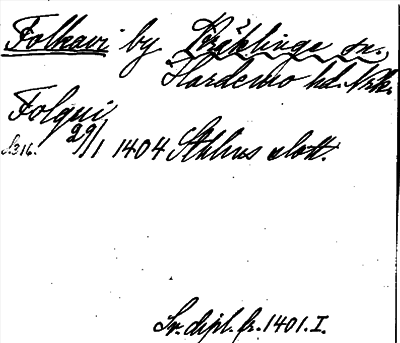 Folkavi by Bräklinge sn.,
Hardemo hd. Nrk.
Folqui
S. 316. 29/1 1404 Sthlms slott.
Sv. dipl. fr. 1401. I.